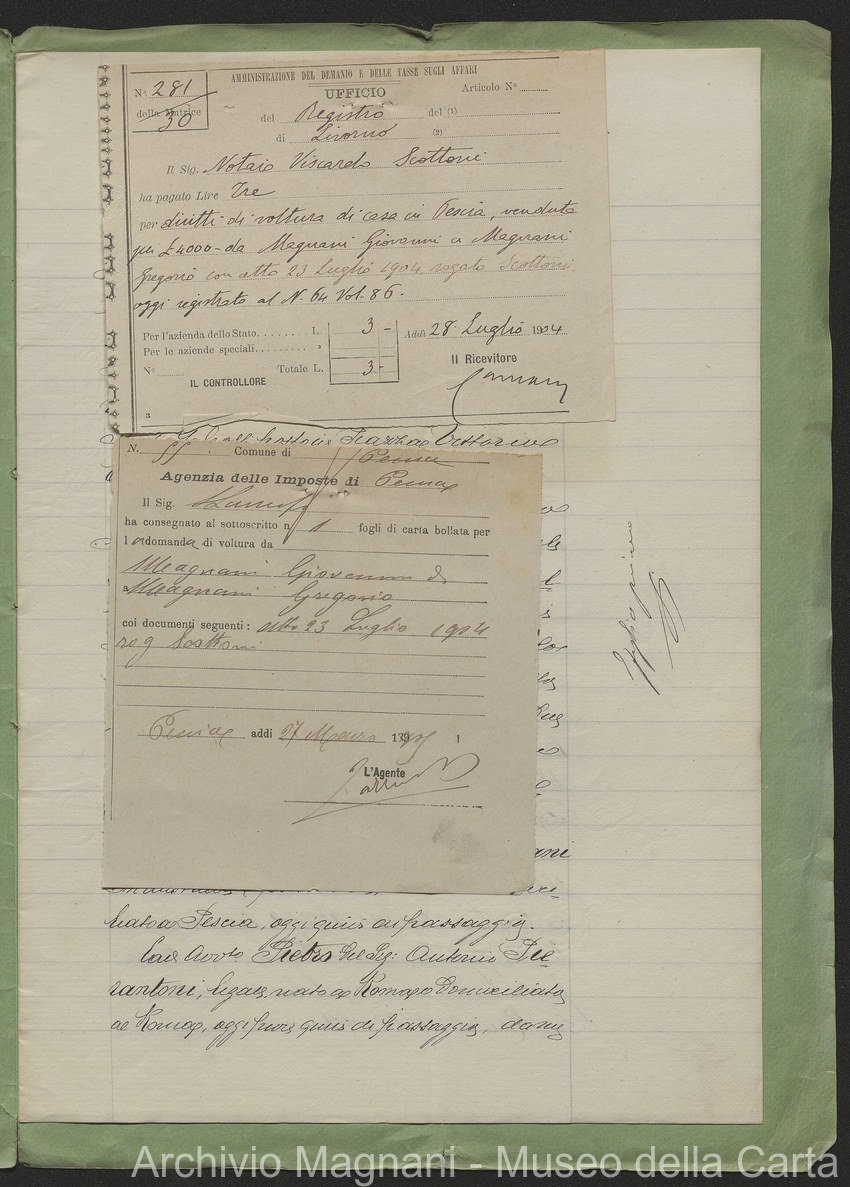 AMMINISTRAZIONE DEL DEMANIO E DELLE TASSE SUGLI AFFARI
N° 281
della Matrice
30
UFFICIO
Articolo N°
del Registro del (1)
di Livorno (2)
Il Sig. Notaio Viscardo Scottoni
ha pagato Lire Tre
per diritti di voltura di casa in Pescia, venduta
per £ 4000 - da Magnani Giovanni a Magnani
Gregorio con atto 23 Luglio 1904 rogato Scottoni
oggi registrato al N. 64 Vol. 86.
Per l'azienda dello Stato. L. 3 -
Per le aziende speciali. »
N° Totale L. 3 -
Addì 28 Luglio 1904
Il Ricevitore
IL CONTROLLORE
3
Piazza Vittorio
N. 55 Comune di Pescia
Agenzia delle Imposte di Pescia
Il Sig.
ha consegnato al sottoscritto n 1 fogli di carta bollata per
la domanda di voltura da
Magnani Giovanni di
a Magnani Gregorio
coi documenti seguenti: atto 23 Luglio 1904
rog Scottoni
Pescia addi 27 Marzo 190
L'Agente
nato a Pescia, oggi quivi di passaggio.
Cav. Avvto Pietro del Sig: Antonio Pie=
rantoni, legale, nato a Roma e domiciliato
a Roma, oggi pure quivi di passaggio,
Archivio Magnani - Museo della Carta